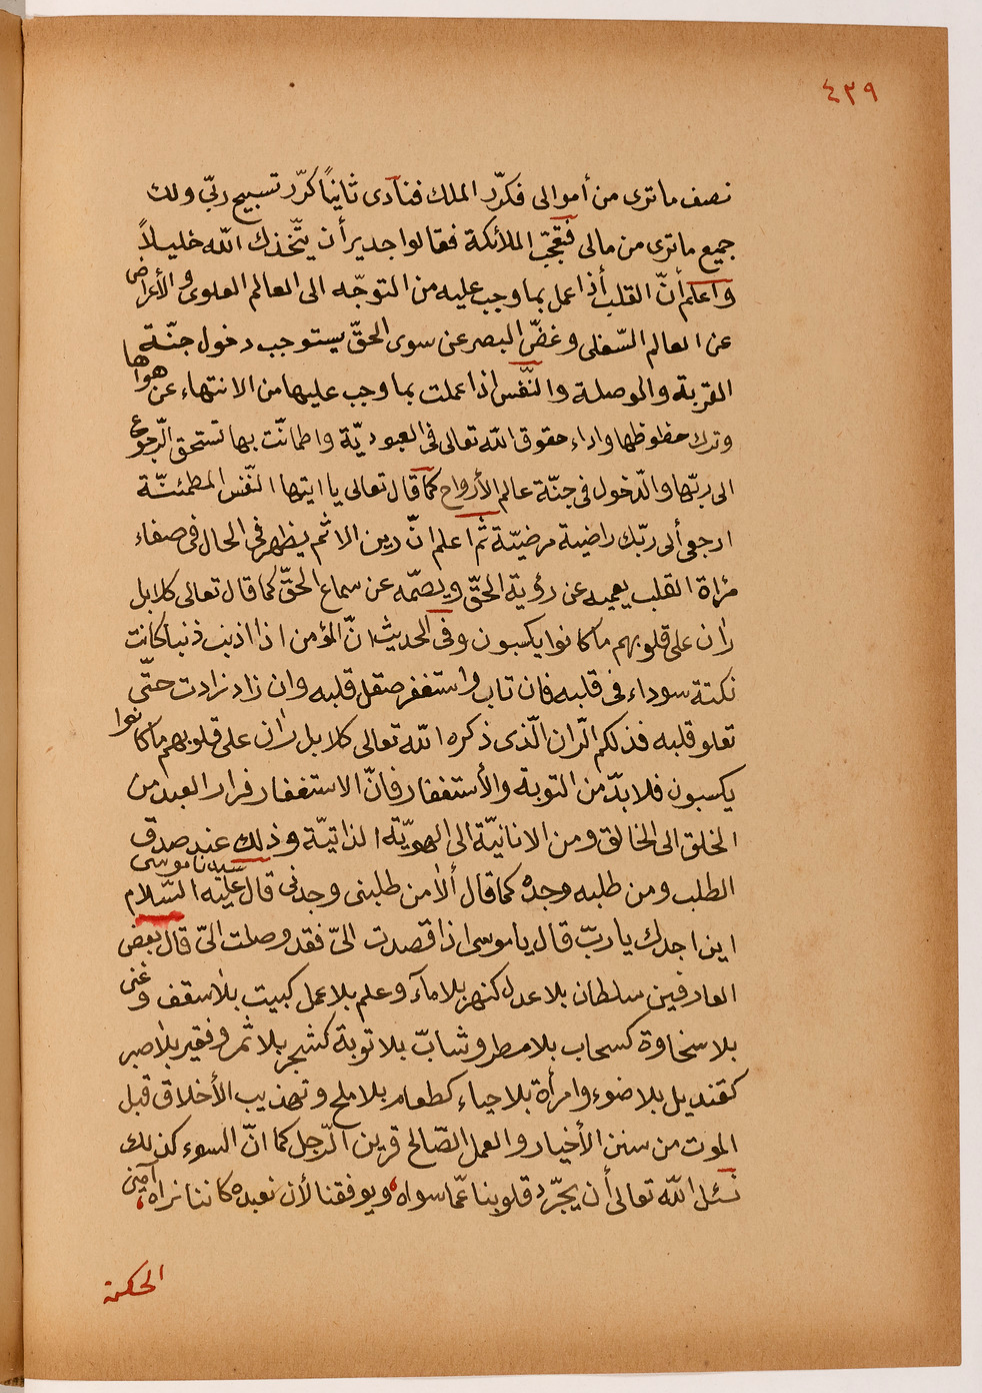 ٤٣٩
نصف ماترى من أموالى فكرّر الملك فنادى ثانيًا كرّر تسبيح ربّي ولك
جميع ماترى من مالى فتعجّب الملائكة فقالوا جدير أن يتّخذك اللّه خليلاً
واعلم أنّ القلب أذا عمل بما وجب عليه من التوجّه الى العالم العلوى والأعراض
عن العالم السّفلى وغضّ البصر عن سوى الحقّ يستوجب دخول جنّة
القربة والوصلة والنّفس اذا عملت بما وجب عليها من الانتهاء عن هواها
وترك حظوظها واداء حقوق اللّه تعالى فى العبوديّة واطمانّت بها تستحق الرّجوع
الى ربّها والدّخول فى جنّة عالم الأرواح كما قال تعالى يا ايتها النّفس المطمئنّة
ارجعى ألى ربّك راضية مرضيّة ثمّ اعلم انّ رين الاثم يظهر فى الحال فى صفاء
مرٔاة القلب يعميه عن رؤية الحقّ ويصمّه عن سماع الحقّ كما قال تعالى كلا بل
ران على قلوبهم ما كانوا يكسبون وفى الحديث انّ المؤمن اذا اذنب ذنبا كانت
نكتة سوداء فى قلبه فان تاب واستغفر صقل قلبه وان زاد زادت حتّى
تعلو قلبه فذلكم الرّان الّذى ذكره اللّه تعالى كلا بل ران على قلوبهم ما كانوا
يكسبون فلا بدّ من التوبة والأستغفار فانّ الاستغفار فرار العبد من
الخلق الى الخالق ومن الانانيّة الى الهويّة الذاتيّة وذلك عند صدق
الطلب ومن طلبه وجده كما قال ألا من طلبنى وجدنى قال سيدنا موسى عليه السّلام
اين اجدك يا ربّ قال يا موسى اذا قصدت الىّ فقد وصلت الىّ قال بعض
العارفين سلطان بلا عدل كنهر بلا مآء وعلم بلا عمل كبيت بلا سقف وغنى
بلا سخاوة كسحاب بلا مطر وشابّ بلا توبة كشجر بلا ثمر وفقير بلا صبر
كقنديل بلا ضوء وامرأة بلا حياء كطعام بلا ملح وتهذيب الأخلاق قبل
الموت من سنن الأخيار والعمل الصّالح قرين الرّجل كما انّ السوء كذلك
نسئل اللّه تعالى أن يجرّد قلوبنا عمّا سواه ويوفقنا لأن نعبده كاننا نراه آمين
الحكمة